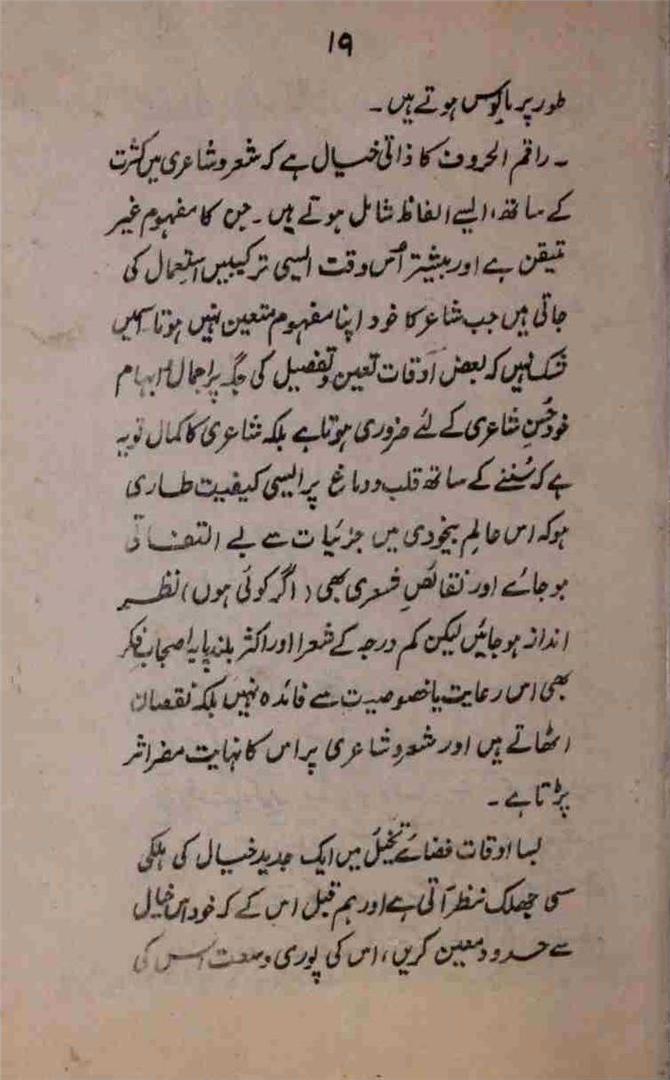 ۱۹
طور پر مایوس ہوتے ہیں۔
۔ راقم الحروف کا ذاتی خیال ہے کہ شعر و شاعری میں کثرت
کے ساتھ، ایسے الفاظ شامل ہوتے ہیں۔ جن کا مفہوم غیر
تیقن ہے اور بیشتر اُس وقت ایسی ترکیبیں استعمال کی
جاتی ہیں جب شاعر کا خود اپنا مفہوم متعین نہیں ہوتا اسمیں
شک نہیں کہ بعض اوقات تعین و تفصیل کی جگہ پر اجمال اور ابہام
خود حُسنِ شاعری کے لئے ضروری ہوتا ہے بلکہ شاعری کا کمال تو یہ
ہے کہ سُننے کے ساتھ قلب و دماغ پر ایسی کیفیت طاری
ہو کہ اس عالمِ بیخودی میں جزئیات سے بے التفاتی
ہو جائے اور نقائصِ شعری بھی (اگر کوئی ہوں) نظر
انداز ہو جائیں لیکن کم درجہ کے شعرا اور اکثر بلند پایہ اصحابِ فکر
بھی اس رعایت یا خصوصیت سے فائدہ نہیں بلکہ نقصان
اٹھاتے ہیں اور شعر و شاعری پر اس کا نہایت مضر اثر
پڑتا ہے۔
بسا اوقات فضائے تخیل میں ایک جدید خیال کی ہلکی
سی جھلک نظر آتی ہے اور ہم قبل اس کے کہ خود اس خیال
سے حدود معین کریں، اس کی پوری وسعت اس کی